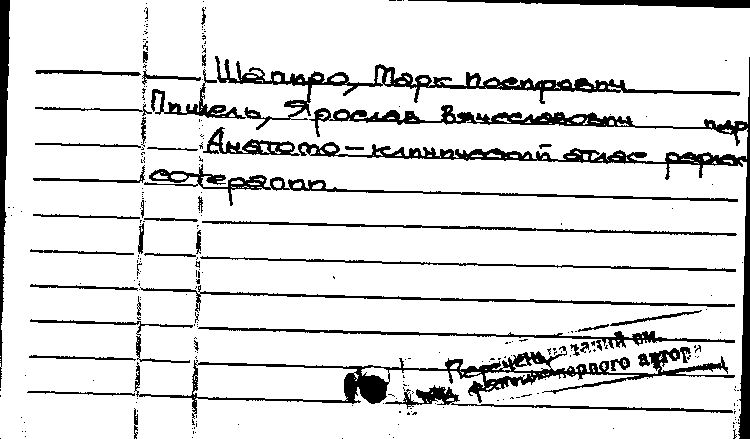 Шапиро, Марк Иосифович
Пишель, Ярослав Вячеславович пер
Анатомо-клинический атлас рефлек
сотерапии.
Перечень изданий см.
под фамилией первого автора